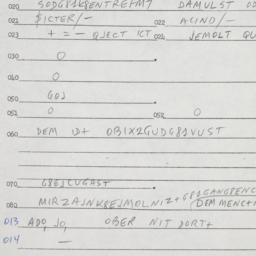 020 SODG81K8ENTREFM7 DAMULST
021 $ICTER/— 022 ACIND/—
023 + = — QJECT ICT 024 JEMOLT QU
030 0
040 0
050 GOJ
051 0 052 0
060 DEM ID+ OBIX2GUDG81VUST
070 G8EJCUGAST
080 MIRZAJNK8EJMOLNIZ+G81GANGPENC
(DEM MENC+N
013 ADO, JO, OBER NIT DORT+
014 —